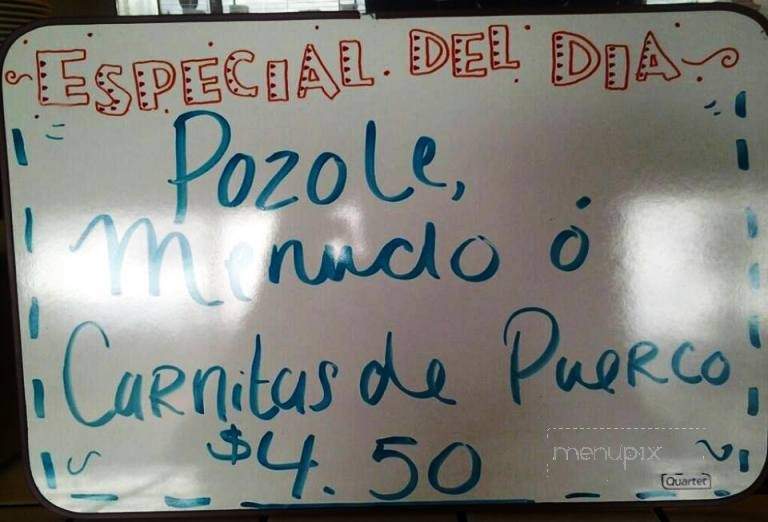 ESPECIAL DEL DIA
Pozole,
Menudo ó
Carnitas de Puerco
$4.50
menupix
Quartet